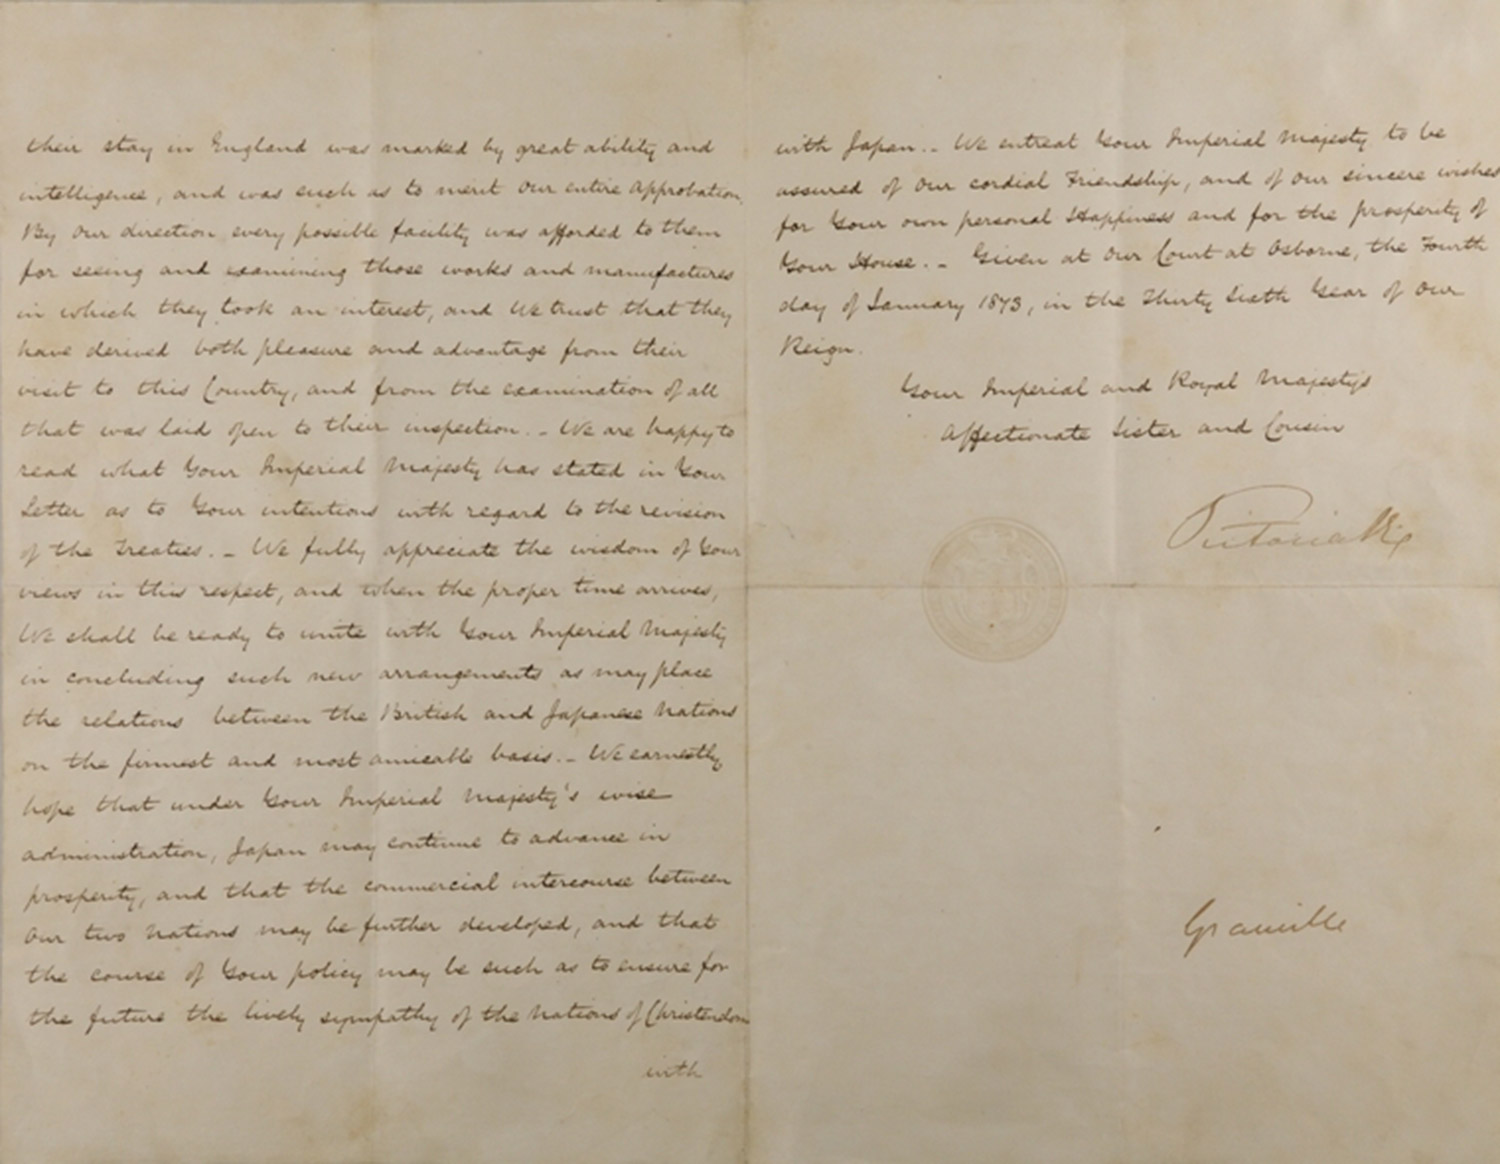 their stay in England was marked by great ability and
intelligence, and was such as to merit Our entire approbation.
By Our direction every possible facility was afforded to them
for seeing and examining those works and manufactures
in which they took an interest, and We trust that they
have derived both pleasure and advantage from their
visit to this Country, and from the examination of all
that was laid open to their inspection. _ We are happy to
read what Your Imperial Majesty has stated in Your
Letter as to Your intentions with regard to the revision
of the Treaties. _ We fully appreciate the wisdom of Your
views in this respect, and when the proper time arrives,
We shall be ready to unite with Your Imperial Majesty
in concluding such new arrangements as may place
the relations between the British and Japanese Nations
on the firmest and most amicable basis. _ We earnestly
hope that under Your Imperial Majesty's wise
administration, Japan may continue to advance in
prosperity, and that the commercial intercourse between
Our two Nations may be further developed, and that
the course of Your policy may be such as to ensure for
the future the lively sympathy of the Nations of Christendom
with
with Japan. _ We entreat Your Imperial Majesty to be
assured of Our cordial Friendship, and of Our sincere wishes
for Your own personal Happiness and for the prosperity of
Your House. _ Given at Our Court at Osborne, the Fourth
day of January 1873, in the Thirty Sixth Year of Our
Reign.
Your Imperial and Royal Majesty's
Affectionate Sister and Cousin
Victoria R
Granville